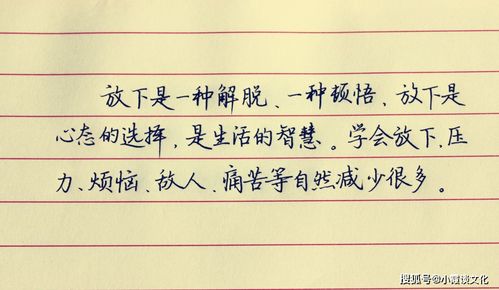 放下是一种解脱、一种顿悟、放下是
心态的选择，是生活的智慧。学会放下、压
力、烦恼、敌人、痛苦等自然减少很多。
搜狐号@小霞谈文化